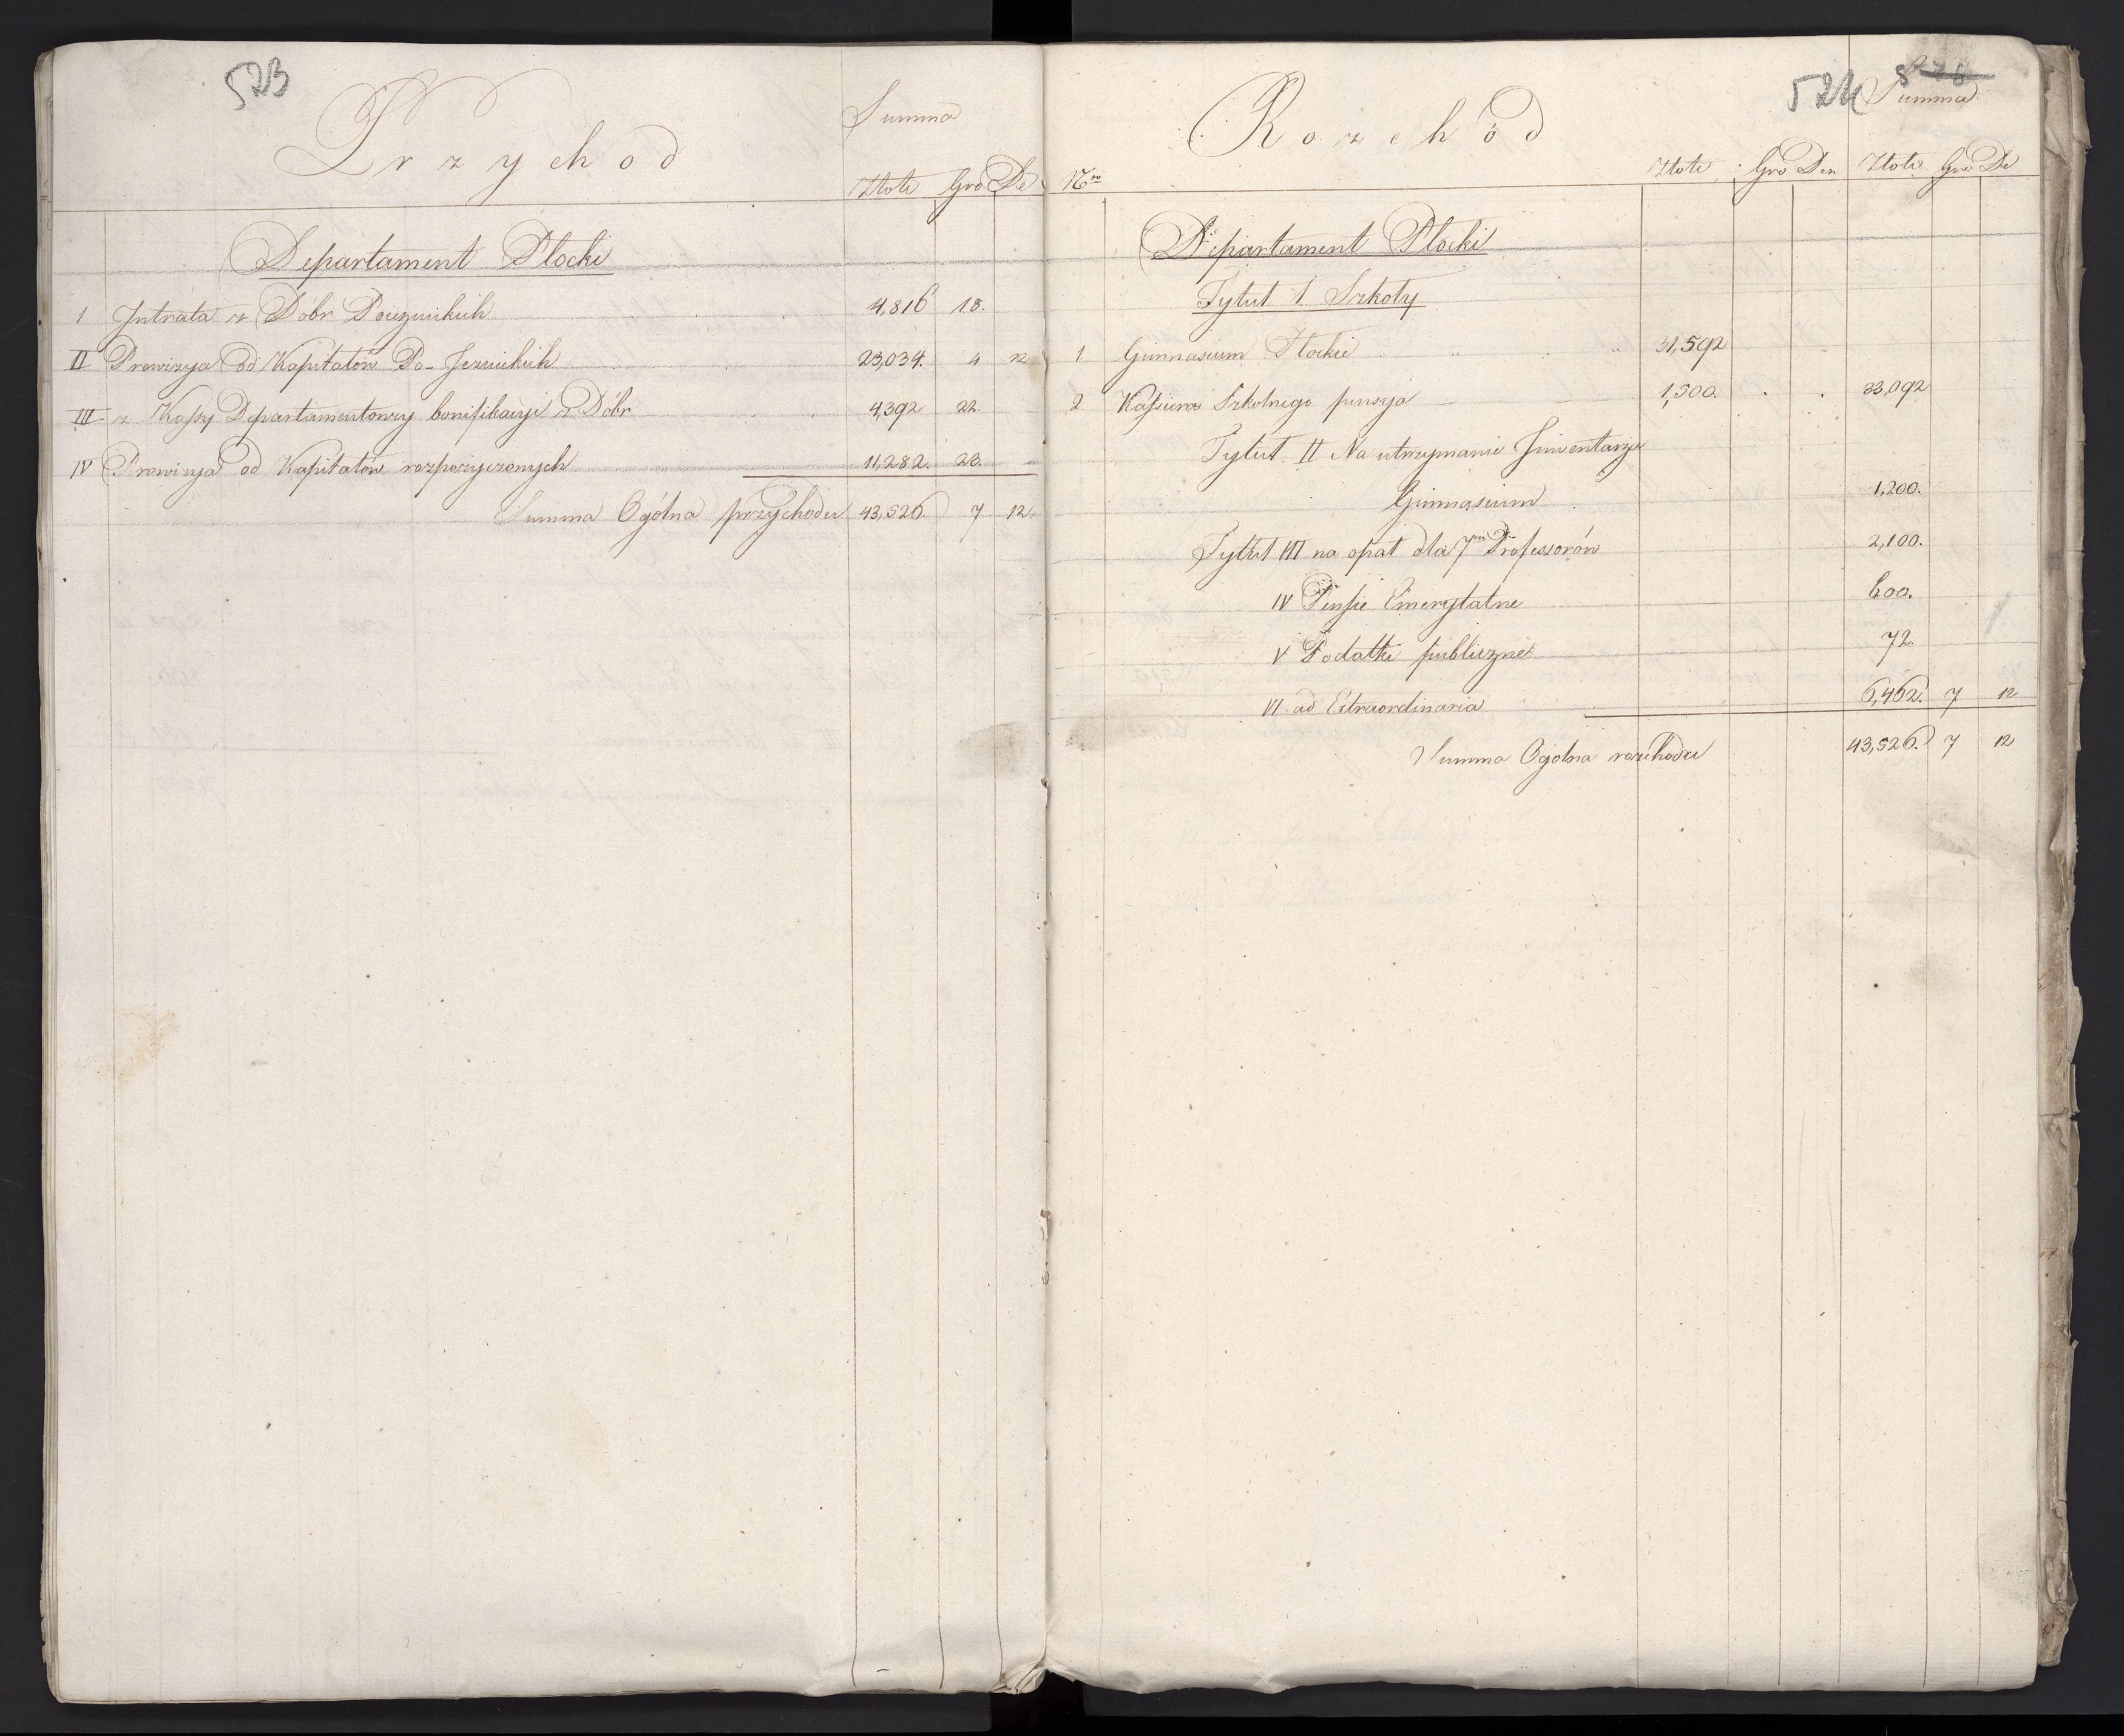 523
Przychod
Summa
Złote Gro De
Departament Płocki
I Intrata z Dóbr Poiezuickich 4,816 18.
II Prowizya od Kapitałów Po-Jezuickich 23,034. 4 12
III z Kassy Departamentowey bonifikacyi z Dóbr 4,392 22.
IV Prowizya od Kapitałów rozpożyczonych 11,282. 23.
Summa Ogólna przychodu 43,526. 7 12.
524
Rozchód
Summa
Nro Złote Gro Den Złote Gro De
Departament Płocki
Tytuł I. Szkoły
1. Gimnasium Płockie 31,592
2 Kassiera Szkolnego pensya 1,500. 33,092
Tytuł II Na utrzymanie Inwentarza
Gimnasium 1,200.
Tytuł III na opał dla 7miu Professorów 2,100.
IV Pensie Emerytalne 600.
V Podatki publiczne 72.
VI ad Extraordinaria 6,462. 7 12
Summa Ogólna rozchodu 43,526. 7 12